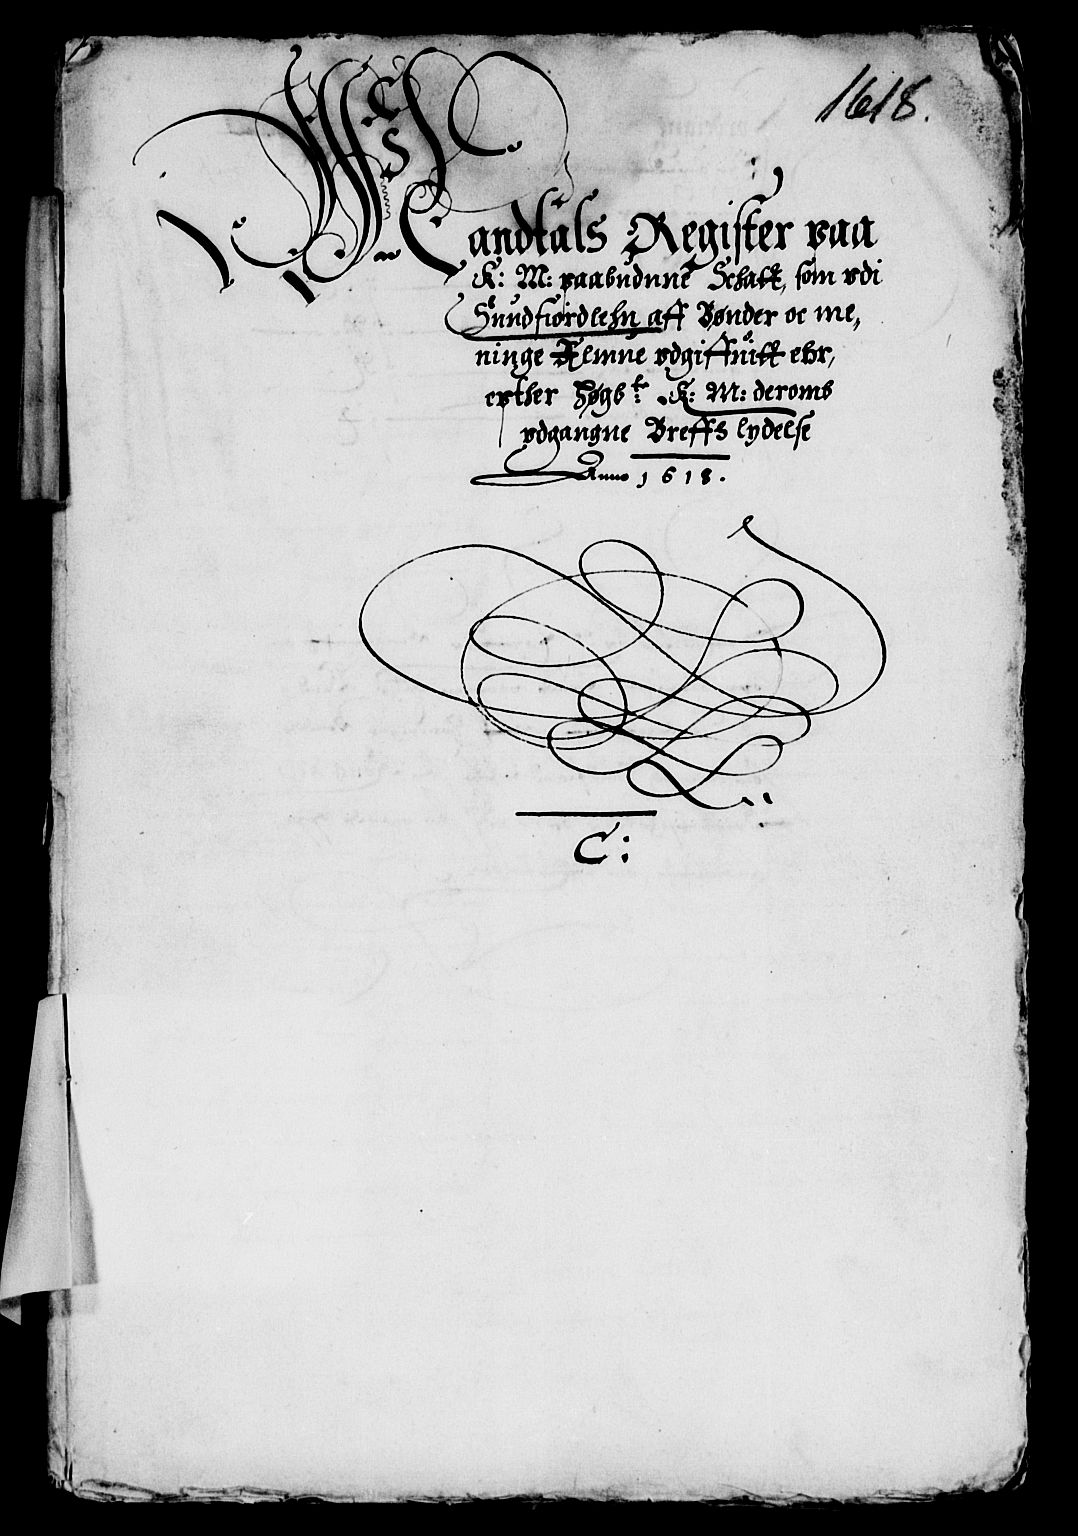 1618.
Mandtals Register paa
K: M: paabudnne Schatt, som vdi
Sundfiordlehn aff Bønder oc me,
ninge Almue vdgiffuitt ehr,
epther høgbte: K: M: deroms
vdgangne Breffs lydelse
Anno 1618.
C: